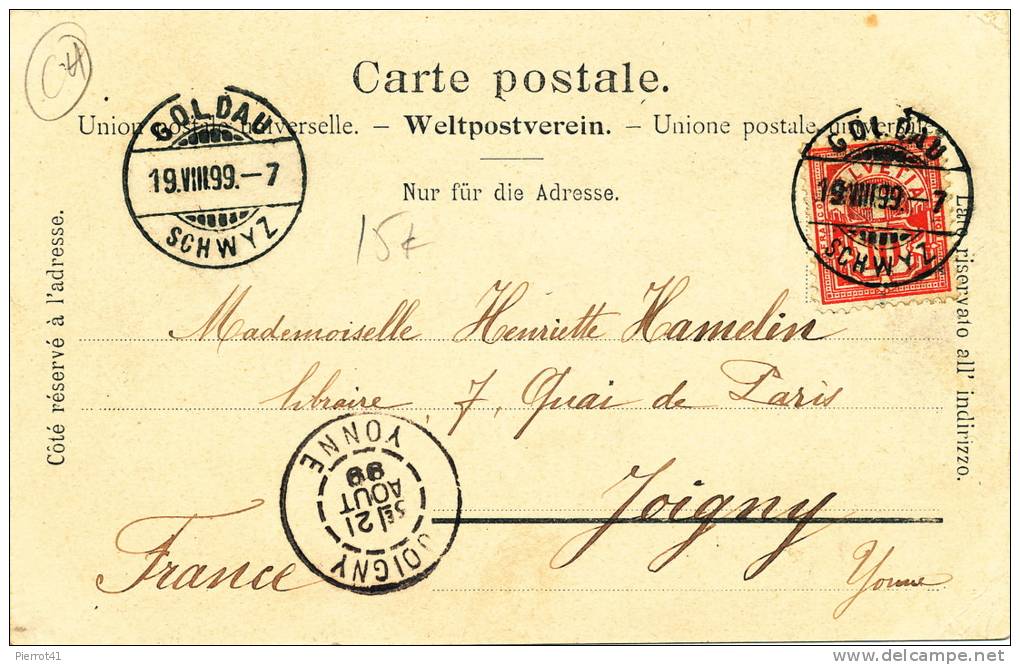 C-H
Carte postale.
Union postale universelle. – Weltpostverein. – Unione postale universale.
Nur für die Adresse.
GOLDAU
19.VIII.99.–7
SCHWYZ
GOLDAU
19.VIII.99.–7
SCHWYZ
HELVETIA
FRANCO
10
15€
Côté réservé à l'adresse.
Lato riservato all' indirizzo.
Mademoiselle Henriette Hamelin
libraire, 7, Quai de Paris
Joigny
Yonne
France
JOIGNY
YONNE
21
AOUT
99
Pierrot41
www.delcampe.net